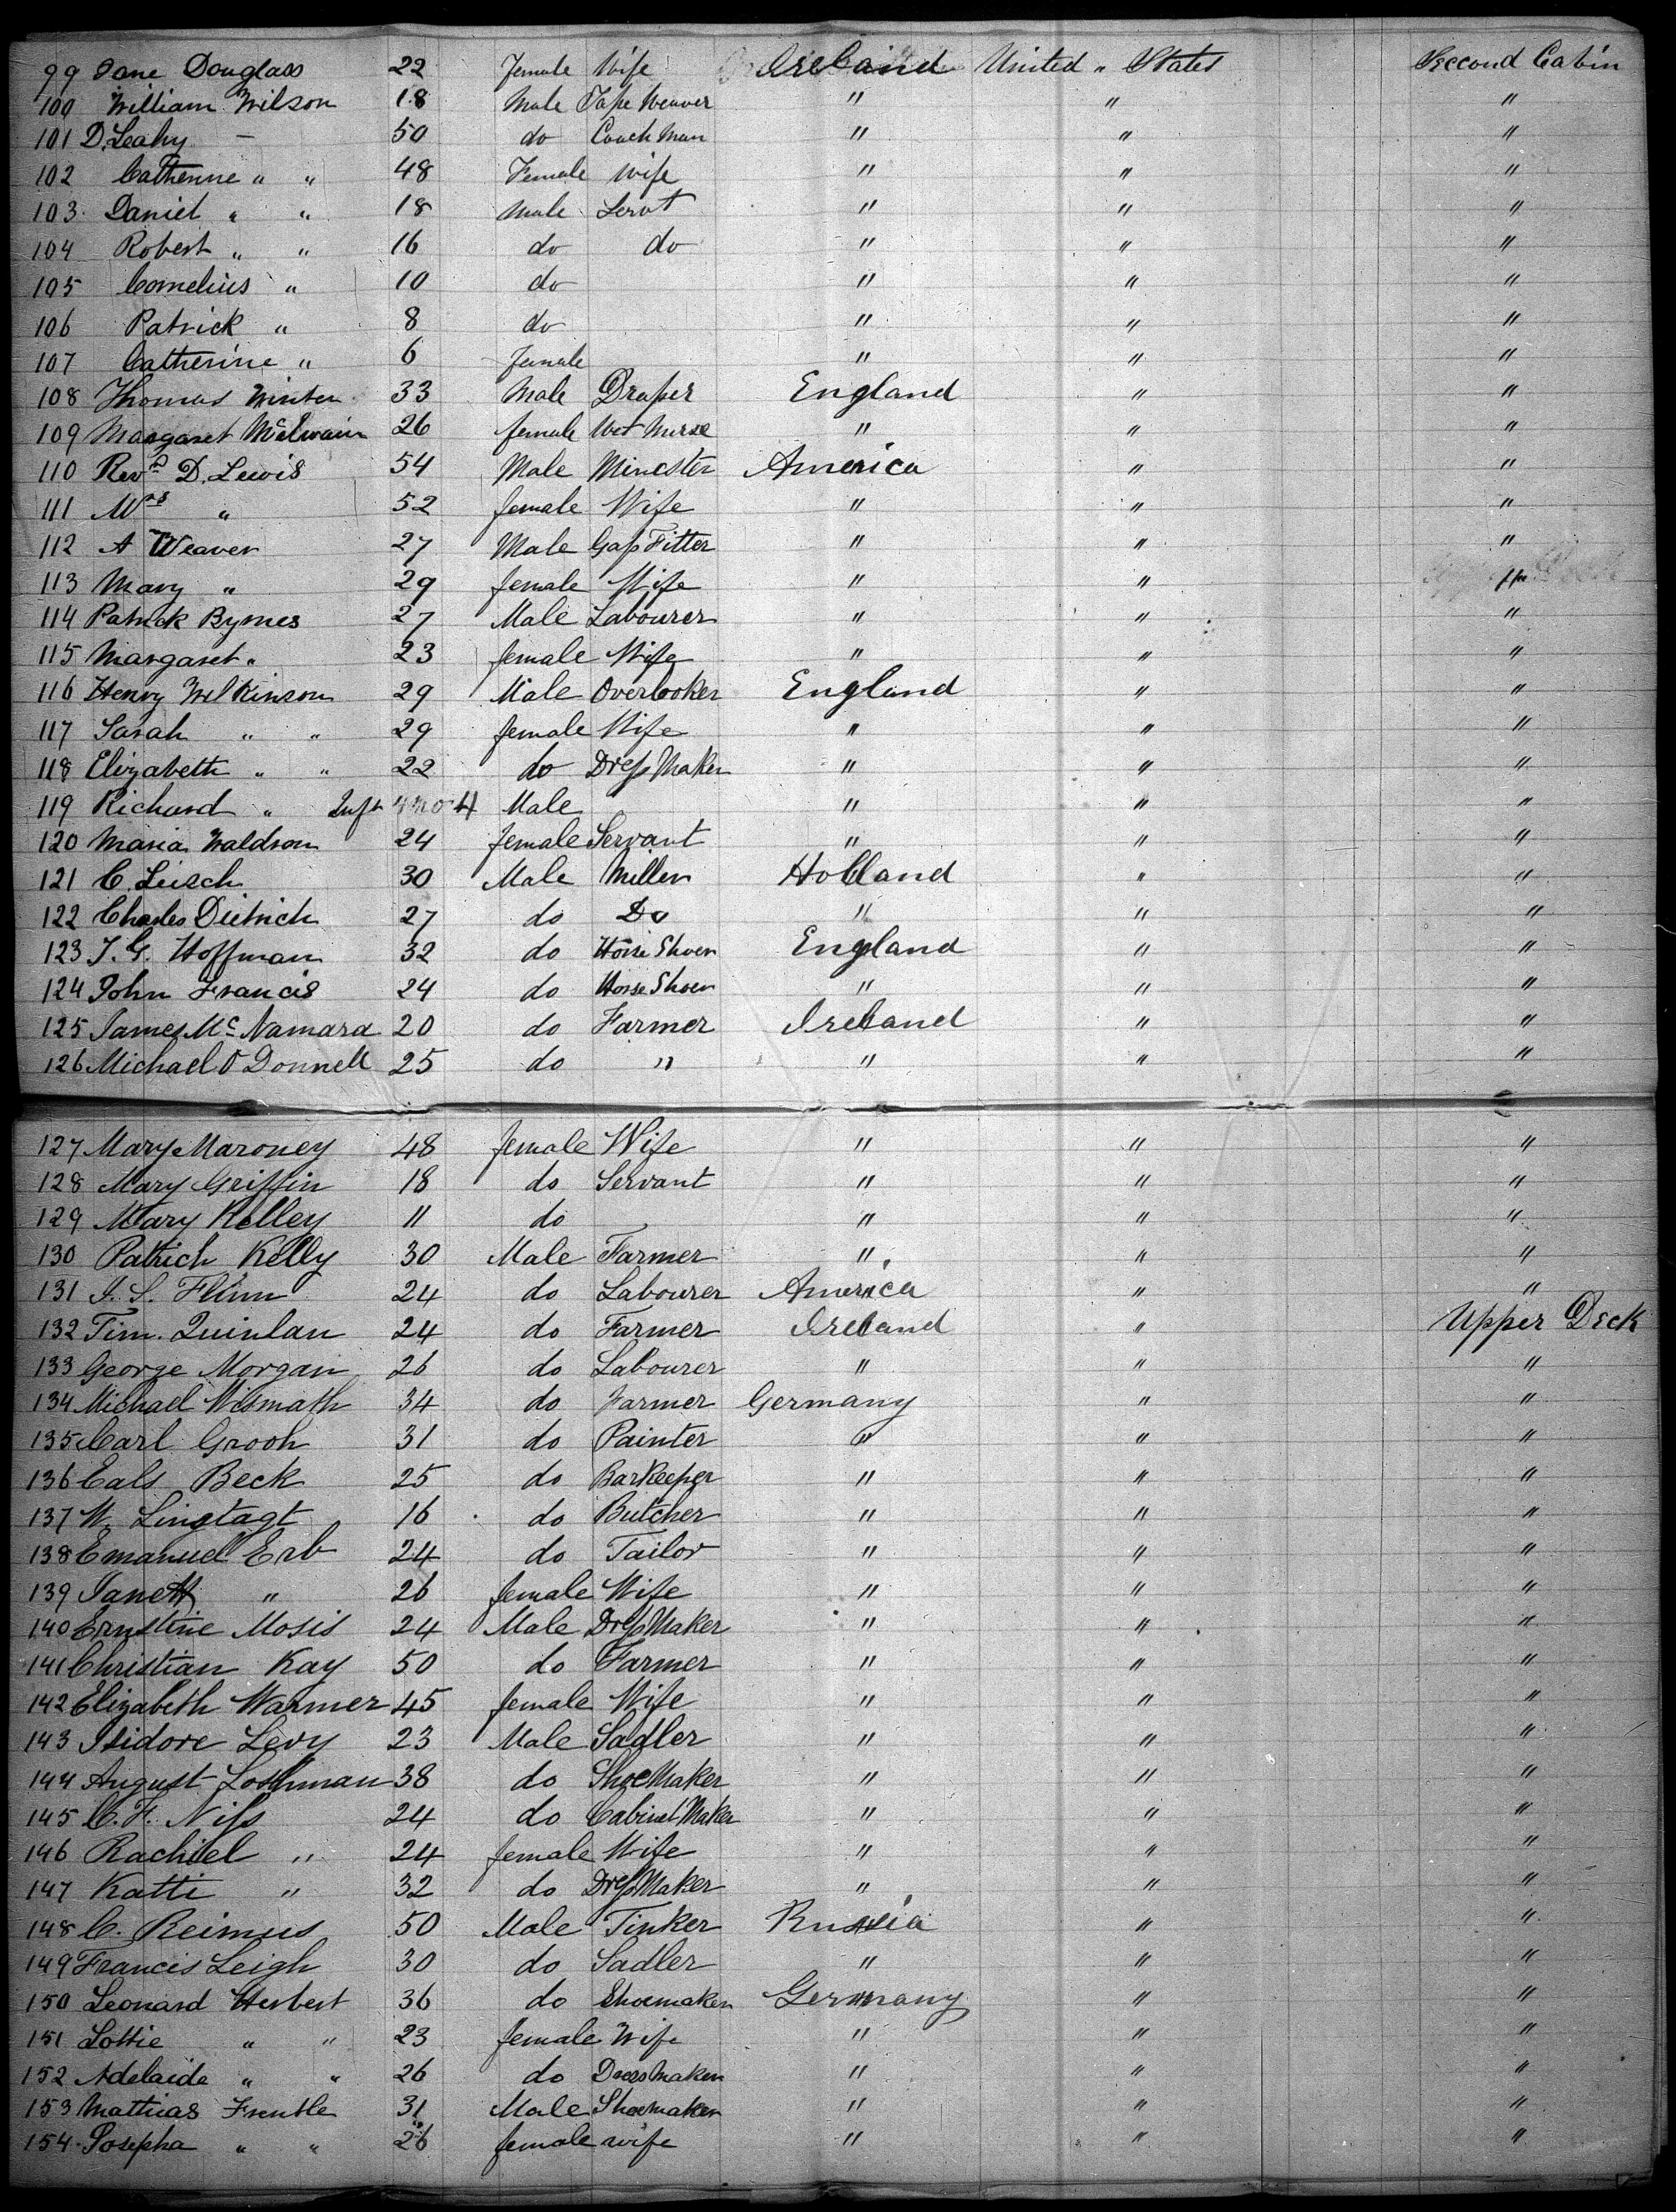 99 Jane Douglass 22 female Wife Ireland United " States Second Cabin
100 William Wilson 18 Male Tape Weaver " " "
101 D. Leahy — 50 do Coach Man " " "
102 Catherine " " 48 Female Wife " " "
103. Daniel " " 18 Male Servt " " "
104 Robert " " 16 do do " " "
105 Cornelius " 10 do " " "
106 Patrick " 8 do " " "
107 Catherine " 6 female " " "
108 Thomas Winter 33 Male Draper England " "
109 Margaret McIlwain 26 female Wet Nurse " " "
110 Revd D. Lewis 54 Male Minester America " "
111 Mrs " 52 female Wife " " "
112 A Weaver 27 Male Gass Fitter " " "
113 Mary " 29 female Wife " " "
114 Patrick Byrnes 27 Male Labourer " " "
115 Margaret " 23 female Wife " " "
116 Henry Wilkinson 29 Male Overlooker England " "
117 Sarah " " 29 female Wife " " "
118 Elizabeth " " 22 do Dress Maker " " "
119 Richard " Inft 4 Male " " "
120 Maria Waldron 24 female Servant " " "
121 C. Leisch 30 Male Miller Holland " "
122 Charles Dietrich 27 do Do " " "
123 J. G. Hoffman 32 do Horse Shoer England " "
124 John Francis 24 do Horse Shoer " " "
125 James Mc Namara 20 do Farmer Ireland " "
126 Michael O Donnell 25 do " " " "
127 Mary Maroney 48 female Wife " " "
128 Mary Griffin 18 do Servant " " "
129 Mary Kelley 11 do " " "
130 Patrich Kelly 30 Male Farmer " " "
131 J. S. Flinn 24 do Labourer America " "
132 Tim. Quinlan 24 do Farmer Ireland " Upper Deck
133 George Morgan 26 do Labourer " " "
134 Michael Wismath 34 do Farmer Germany " "
135 Carl Grooh 31 do Painter " " "
136 Cals Beck 25 do Barkeeper " " "
137 W. Lingtagt 16 do Butcher " " "
138 Emanuel Erb 24 do Tailor " " "
139 Janett " 26 female Wife " " "
140 Ernstine Mosis 24 Male Dress Maker " " "
141 Christian Kay 50 do Farmer " " "
142 Elizabeth Warmer 45 female Wife " " "
143 Isidore Levy 23 Male Sadler " " "
144 August Loshman 38 do Shoe Maker " " "
145 C. F. Niss 24 do Cabinet Maker " " "
146 Rachiel " 24 female Wife " " "
147 Katti " 32 do Dress Maker " " "
148 C. Reimus 50 Male Tinker Russia " "
149 Francis Leigh 30 do Sadler " " "
150 Leonard Herbert 36 do Shoemaker Germany " "
151 Lottie " " 23 female Wife " " "
152 Adelaide " " 26 do Dress Maker " " "
153 Mathias Frentle 31 Male Shoemaker " " "
154. Josepha " " 26 female wife " " "